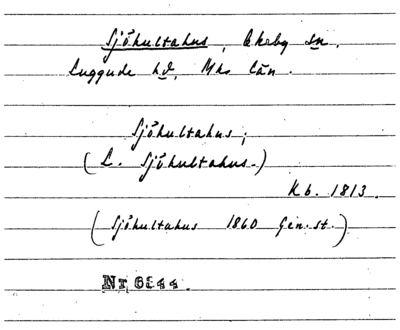 Sjöhultahus, Ekeby sn.
Luggude hd, Mhs län.
Sjöhultahus;
(L. Sjöhultahus.)
Kb. 1813.
(Sjöhultahus 1860 Gen.st.)
Nr 6344.